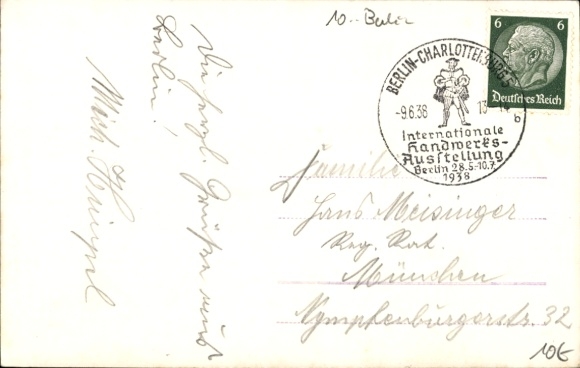 10.- Berlin
6 6
Deutsches Reich
BERLIN-CHARLOTTENBURG 5
-9.6.38 13-14
b
Internationale
Handwerks-
Ausstellung
Berlin 28.5-10.7.
1938
Familie
Hans Meisinger
Reg. Rat.
München
Nymphenburgerstr. 32
10€
Viel herzl. Grüße aus
Berlin!